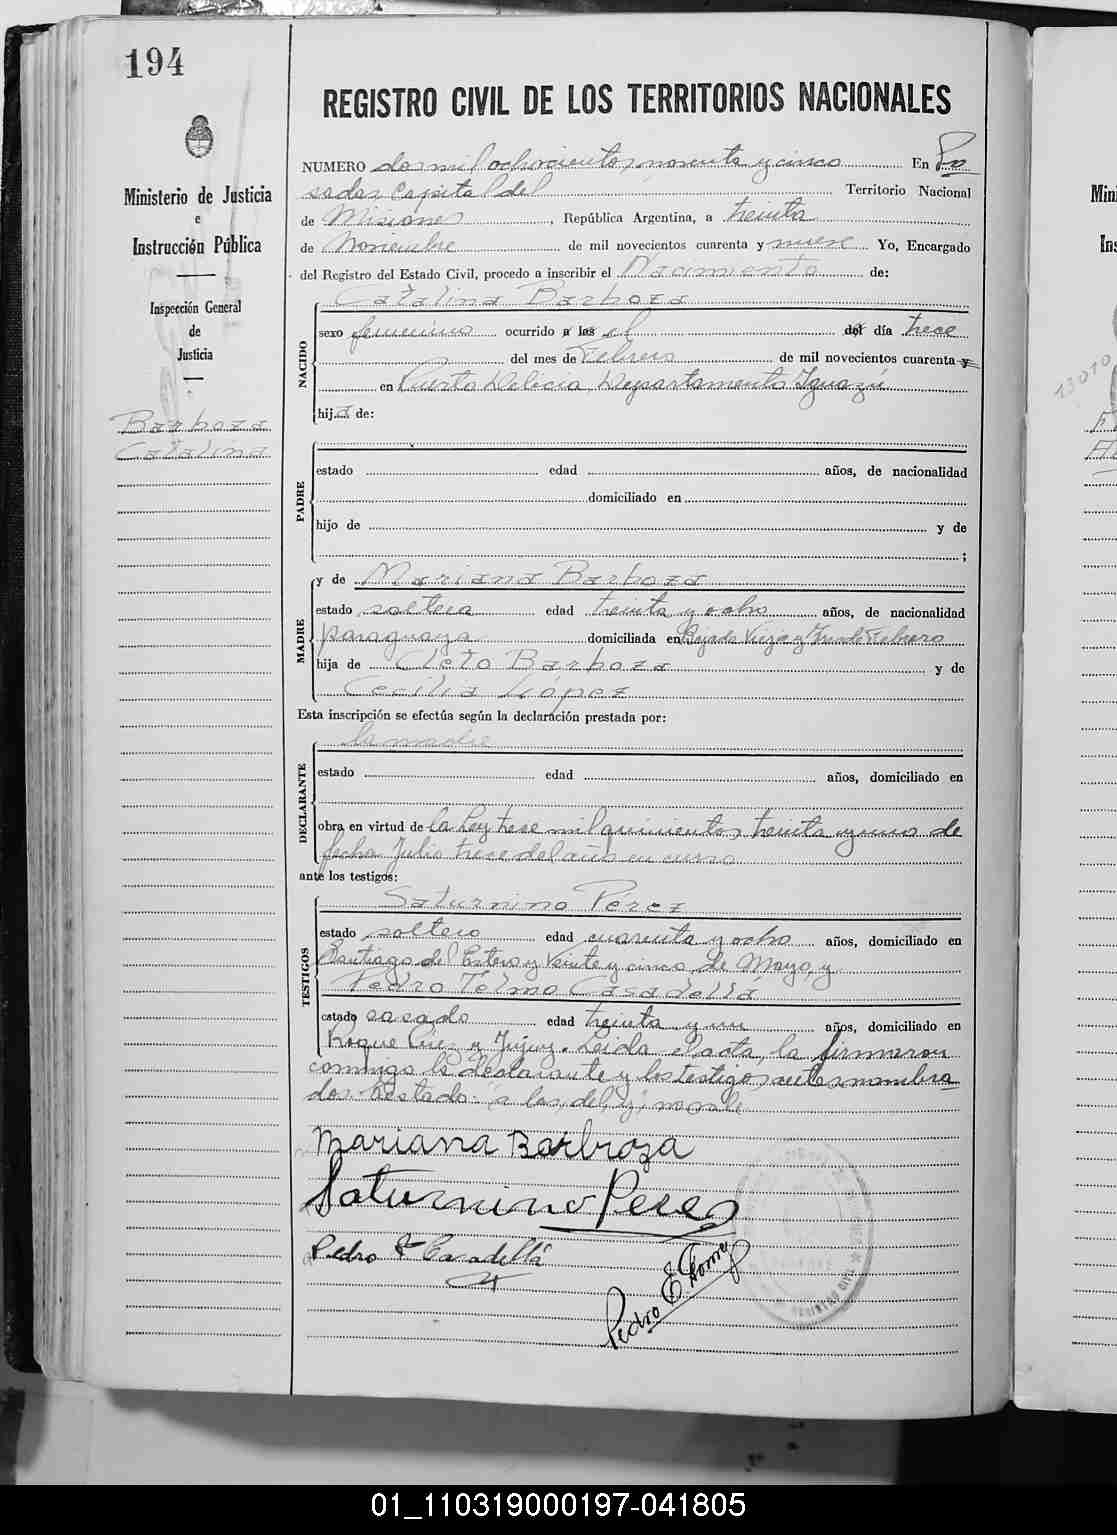 194
Ministerio de Justicia
e
Instrucción Pública
Inspección General
de
Justicia
Barboza
Catalina
REGISTRO CIVIL DE LOS TERRITORIOS NACIONALES
NUMERO dos mil ochocientos noventa y cinco En Po
sadas Capital del Territorio Nacional
de Misiones, República Argentina, a treinta
de Noviembre de mil novecientos cuarenta y nueve Yo, Encargado
del Registro del Estado Civil, procedo a inscribir el Nacimiento de:
NACIDO
Catalina Barboza
sexo femenino ocurrido a las el del día trece
del mes de Febrero de mil novecientos cuarenta y
en Puerto Delicia, Departamento Iguazú
hija de:
PADRE
estado edad años, de nacionalidad
domiciliado en
hijo de y de
;
MADRE
y de Mariana Barboza
estado soltera edad treinta y ocho años, de nacionalidad
paraguaya domiciliada en Bajada Vieja y Febrero
hija de Cleto Barboza y de
Cecilia López
Esta inscripción se efectúa según la declaración prestada por:
DECLARANTE
la madre
estado edad años, domiciliado en
obra en virtud de la Ley trece mil quinientos treinta y uno de
fecha Julio trece del año en curso
ante los testigos:
TESTIGOS
Saturnino Pérez
estado soltero edad cuarenta y ocho años, domiciliado en
Santiago del Estero y Veinte y cinco de Mayo, y
Pedro Telmo Casadellá
estado casado edad treinta y un años, domiciliado en
Roque Cruz y Jujuy. Leída el acta, la firmaron
conmigo la declarante y los testigos antes nombra
dos. Testado: a las, del, y, no vale
Mariana Barbroza
Saturnino Peres
Pedro T Casadellá
Pedro E.
REGISTRO CIVIL
13010
Min
Ins
01_110319000197-041805